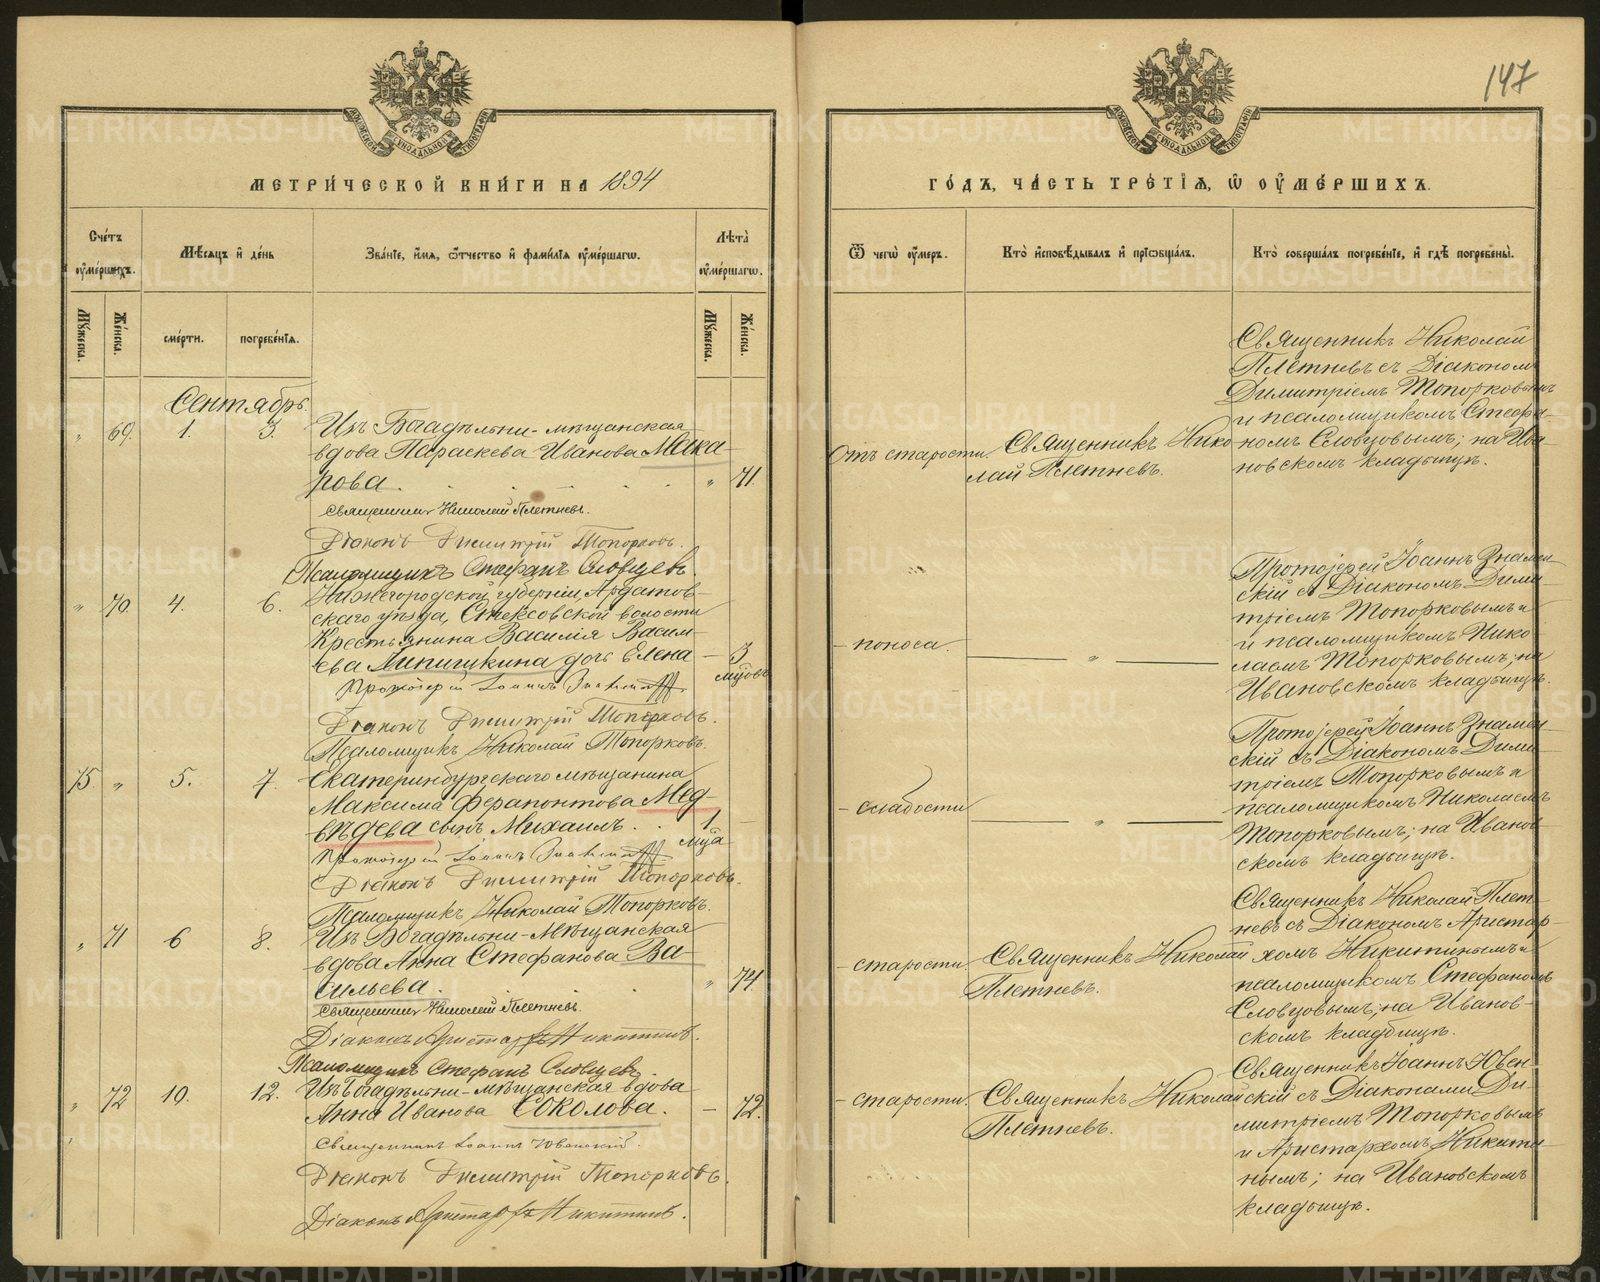 147
МЕТРИ́ЧЕСКОЙ КНИ́ГИ НА 1894
ГО́ДЪ, ЧА́СТЬ ТРЕ́ТІЯ, Ѿ ОУ҆МЕ́РШИХЪ.
Сче́тъ оу҆ме́ршихъ.
Мѣ́сяцъ и҆ де́нь
Зва́нїе, и҆́мя, ѻ҆́тчество и҆ фамі́лїя оу҆ме́ршагѡ.
Лѣта̀ оу҆ме́ршагѡ.
Ѿ чегѡ̀ оу҆́меръ.
Кто̀ и҆сповѣ́дывалъ и҆ прїѡбща́лъ.
Кто̀ соверша́лъ погребе́нїе, и҆ гдѣ̀ погребены̀.
Му́жеска.
Же́нска.
сме́рти.
погребе́нїя.
Му́жеска.
Же́нска.
Сентябрь.
" 69. 1. 3.
Изъ Богадѣльни - мѣщанская
вдова Параскева Иванова Мака-
рова.
" 71.
Священникъ Николай Плетневъ.
Діаконъ Димитрій Топорковъ.
Псаломщикъ Стефанъ Словцевъ.
Отъ старости
Священникъ Нико-
лай Плетневъ.
Священникъ Николай
Плетневъ съ Діакономъ
Димитріемъ Топорковымъ
и псаломщикомъ Стефа-
номъ Словцовымъ; на Ива-
новскомъ кладбищѣ.
" 70. 4. 6.
Нижегородской губерніи, Ардатов-
скаго уѣзда, Стексовской волости
Крестьянина Василія Васил-
ьева Липишкина дочь Елена
— 3
мѣсяцовъ
Протоіерей Іоаннъ Знаменскій
Діаконъ Димитрій Топорковъ.
Псаломщикъ Николай Топорковъ.
- поноса.
"
Протоіерей Іоаннъ Знамен-
скій съ Діакономъ Дими-
тріемъ Топорковымъ и
и псаломщикомъ Нико-
лаемъ Топорковымъ; на
Ивановскомъ кладбищѣ.
75 " 5. 7.
Екатеринбургскаго мѣщанина
Максима Ферапонтова Мед-
вѣдева сынъ Михаилъ.
1 —
Протоіерей Іоаннъ Знаменскій
Діаконъ Димитрій Топорковъ.
Псаломщикъ Николай Топорковъ.
- слабости
"
Протоіерей Іоаннъ Знамен-
скій съ Діакономъ Дими-
тріемъ Топорковымъ и
псаломщикомъ Николаемъ
Топорковымъ; на Иванов-
скомъ кладбищѣ.
" 71 6 8.
Изъ Богадѣльни - Мѣщанская
вдова Анна Стефанова Ва-
сильева.
" 74.
Священникъ Николай Плетневъ.
Діаконъ Аристархъ Никитинъ.
Псаломщикъ Стефанъ Словцевъ.
- старости.
Священникъ Николай
Плетневъ.
Священникъ Николай Плет-
невъ съ Діакономъ Аристар-
хомъ Никитинымъ и
псаломщикомъ Стефаномъ
Словцовымъ; на Иванов-
скомъ кладбищѣ.
" 72 10. 12.
Изъ Богадѣльни - мѣщанская вдова
Анна Иванова Соколова.
— 72.
Священникъ Іоаннъ Ювенскій.
Діаконъ Димитрій Топорковъ.
Діаконъ Аристархъ Никитинъ.
- старости.
Священникъ Николай
Плетневъ.
Священникъ Іоаннъ Ювен-
скій съ Діаконами Ди-
митріемъ Топорковымъ
и Аристархомъ Никити-
нымъ; на Ивановскомъ
кладбищѣ.
METRIKI.GASO-URAL.RU